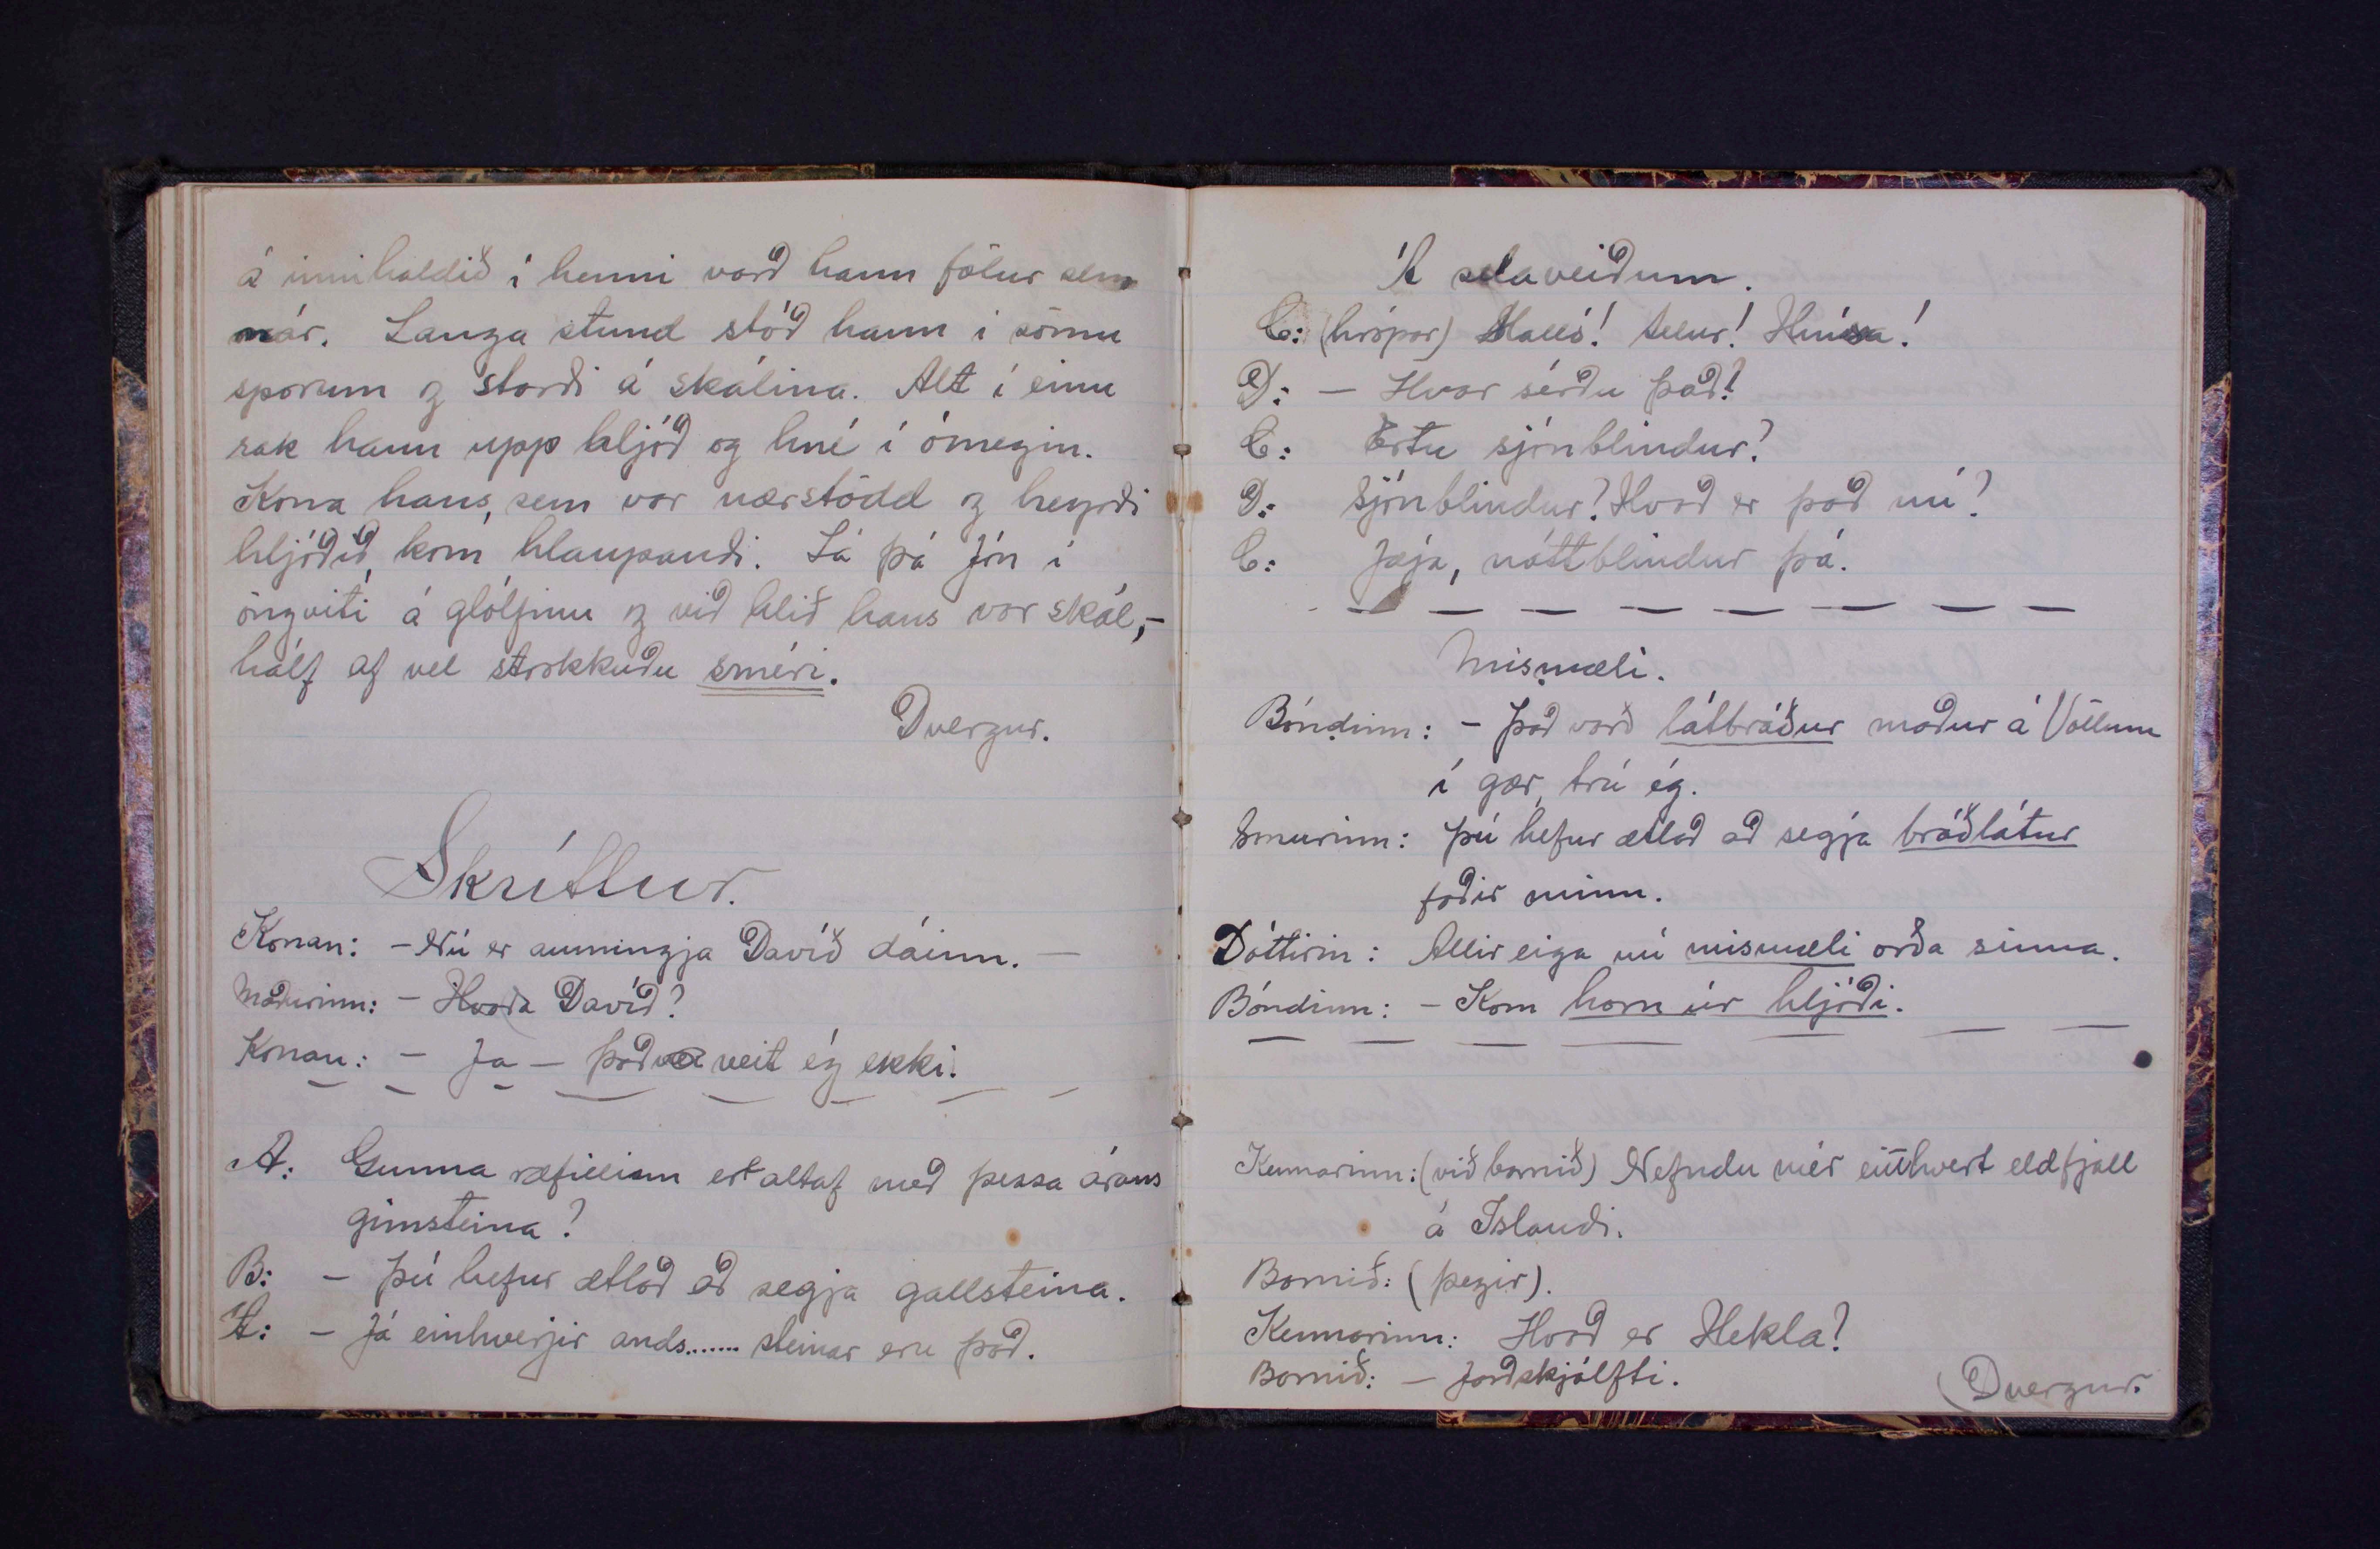 á innihaldið í henni varð hann fölur sem
nár. Langa stund stóð hann í sömu
sporum og starði á skálina. Alt í einu
rak hann upp hljóð og hné í ómegin.
Kona hans, sem var nærstödd og heyrði
hljóðið, kom hlaupandi. Lá þá Jón í
öngviti á glólfinu og við hlið hans var skál,-
hálf af vel strokkuðu sméri.
Dvergur.
Skrítlur.
Konan: - Nú er aumingja Davíð dáinn. —
Maðurinn: - Hvaða Davíð?
Konan: - Ja - það veit ég ekki.
A: Gunna ræfillinn er altaf með þessa árans
gimsteina?
B: - Þú hefur ætlað að segja gallsteina.
A: - Já einhverjir ands....... steinar eru það.
Á selaveiðum.
C: (hrópar) Halló! Selur! Hnísa!
D: - Hvar sérðu það?
C: Ertu sjónblindur?
D: Sjónblindur? Hvað er það nú?
C: Jæja, náttblindur þá.
Mismæli.
Bóndinn: - Það varð látbráður maður á Völlum
í gær, trú ég.
Smurinn: Þú hefur ætlað að segja bráðlátur
faðir minn.
Dóttirin: Allir eiga nú mismæli orða sinna.
Bóndinn: - Kom horn úr hljóði.
Kennarinn: (við barnið) Nefndu mér eitthvert eldfjall
á Íslandi.
Barnið: (þegir).
Kennarinn: Hvað er Hekla?
Barnið: - Jarðskjálfti.
Dvergur.